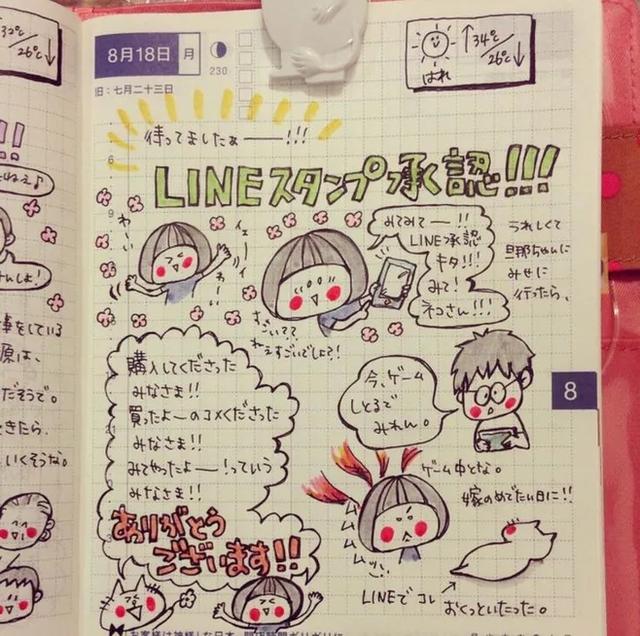 8月18日 月
230
旧:七月二十三日
32℃/26℃
↑34℃/26℃↓
はれ
待ってましたぁ――!!!
LINEスタンプ承認!!!
わーい
イェーイ
みてみてー!!
LINE承認
キタ!!!
みて!
ネコさん!!!
うれしくて
旦那ちゃんに
みせに
行ったら、
すごい??
ねえすごいでしょ?!
購入してくださった
みなさま!!
買ったよーのコメくださった
みなさま!!
みてやったよー!っていう
みなさま!!
ありがとう
ございます!!
今、ゲーム
しとるで
みれん。
8
ゲーム中とな。
嫁のめでたい日に!!
ムムムム
LINEでコレ
おくっといたった。
んしょ!
事をしている
原は、
だそうで。
ときたら、
いくそうな。